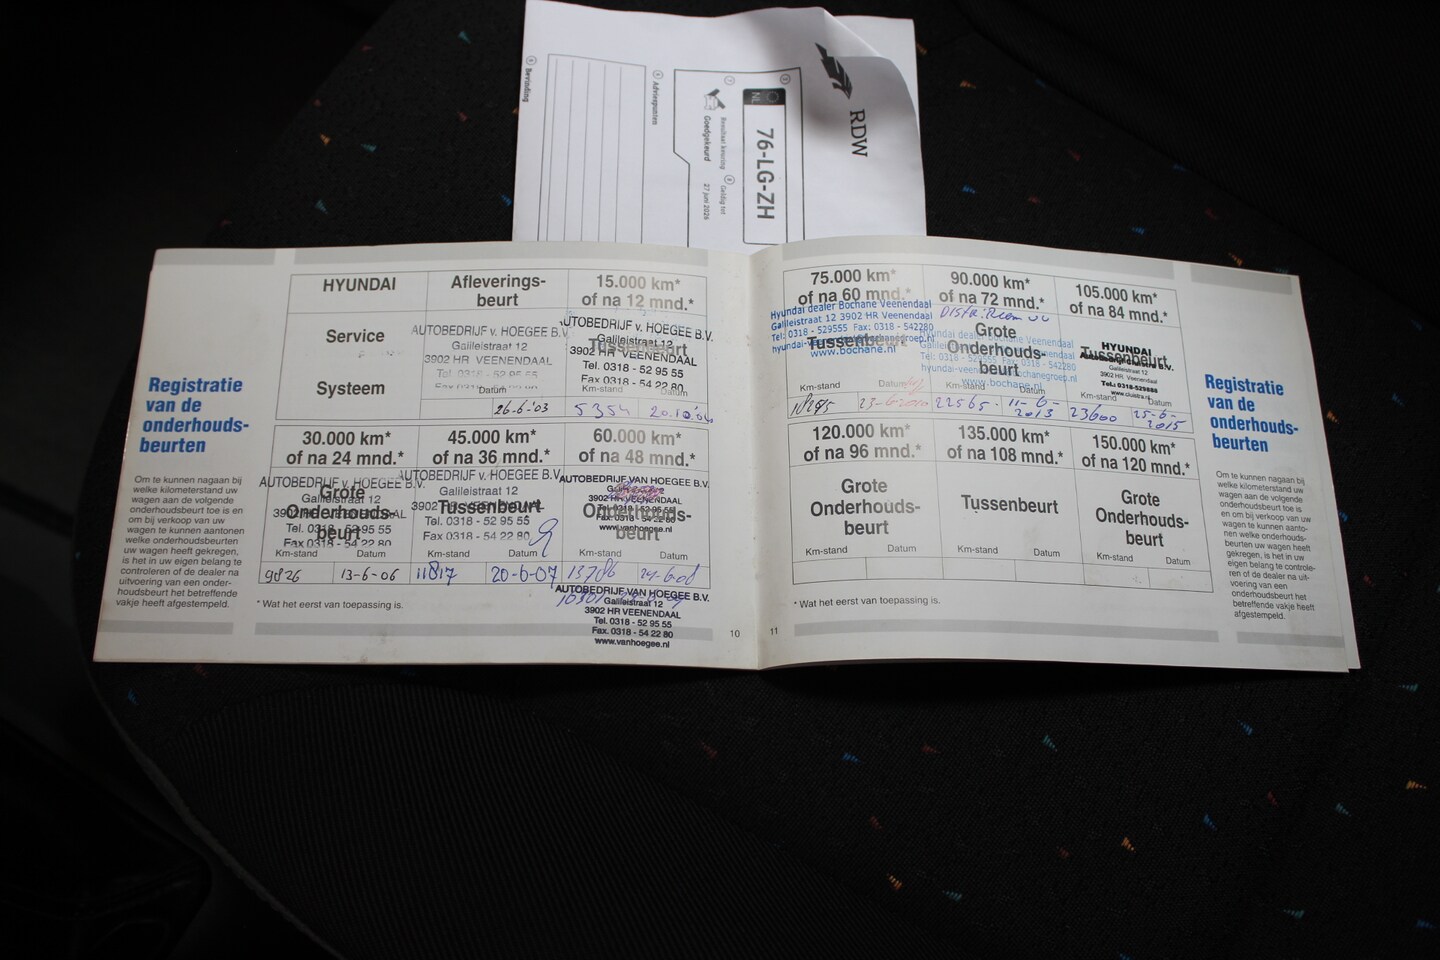 RDW
NL
76-LG-ZH
Resultaat keuring
Goedgekeurd
Geldig tot
27 juni 2026
Adviespunten
Bevinding
Registratie
van de
onderhouds-
beurten
Om te kunnen nagaan bij
welke kilometerstand uw
wagen aan de volgende
onderhoudsbeurt toe is en
om bij verkoop van uw
wagen te kunnen aantonen
welke onderhoudsbeurten
uw wagen heeft gekregen,
is het in uw eigen belang te
controleren of de dealer na
uitvoering van een onder-
houdsbeurt het betreffende
vakje heeft afgestempeld.
HYUNDAI
Service
Systeem
Afleverings-
beurt
AUTOBEDRIJF v. HOEGEE B.V.
Galileistraat 12
3902 HR VEENENDAAL
Tel. 0318 - 52 95 55
Datum
26-6-'03
15.000 km*
of na 12 mnd.*
Tussenbeurt
AUTOBEDRIJF v. HOEGEE B.V.
Galileistraat 12
3902 HR VEENENDAAL
Tel. 0318 - 52 95 55
Fax 0318 - 54 22 80
Km-stand
Datum
5354
30.000 km*
of na 24 mnd.*
Grote
Onderhouds-
beurt
AUTOBEDRIJF v. HOEGEE B.V.
Galileistraat 12
3902 HR VEENENDAAL
Tel. 0318 - 52 95 55
Fax 0318 - 54 22 80
Km-stand
Datum
9826
13-6-06
45.000 km*
of na 36 mnd.*
Tussenbeurt
AUTOBEDRIJF v. HOEGEE B.V.
Galileistraat 12
3902 HR VEENENDAAL
Tel. 0318 - 52 95 55
Fax 0318 - 54 22 80
Km-stand
Datum
11817
20-6-07
60.000 km*
of na 48 mnd.*
Onderhouds-
beurt
AUTOBEDRIJF VAN HOEGEE B.V.
3902 HR VEENENDAAL
Tel. 0318 - 52 95 55
Fax. 0318 - 54 22 80
www.vanhoegee.nl
Km-stand
Datum
13786
24-6-08
AUTOBEDRIJF VAN HOEGEE B.V.
Galileistraat 12
3902 HR VEENENDAAL
Tel. 0318 - 52 95 55
Fax. 0318 - 54 22 80
www.vanhoegee.nl
* Wat het eerst van toepassing is.
10
75.000 km*
of na 60 mnd.*
Tussenbeurt
Hyundai dealer Bochane Veenendaal
Galileistraat 12 3902 HR Veenendaal
Tel: 0318 - 529555 Fax: 0318 - 542280
www.bochane.nl
Km-stand
Datum
18285
23-6-2010
90.000 km*
of na 72 mnd.*
Grote
Onderhouds-
beurt
Hyundai dealer Bochane Veenendaal
hyundai-veenendaal@bochanegroep.nl
www.bochane.nl
Km-stand
Datum
22565-
11-6-
2013
105.000 km*
of na 84 mnd.*
Tussenbeurt
HYUNDAI
Galileistraat 12
3902 HR Veenendaal
Tel.: 0318-529888
Km-stand
Datum
23600
25-6-
2015
120.000 km*
of na 96 mnd.*
Grote
Onderhouds-
beurt
Km-stand
Datum
135.000 km*
of na 108 mnd.*
Tussenbeurt
Km-stand
Datum
150.000 km*
of na 120 mnd.*
Grote
Onderhouds-
beurt
Km-stand
Datum
* Wat het eerst van toepassing is.
11
Registratie
van de
onderhouds-
beurten
Om te kunnen nagaan bij
welke kilometerstand uw
wagen aan de volgende
onderhoudsbeurt toe is
en om bij verkoop van uw
wagen te kunnen aanto-
nen welke onderhouds-
beurten uw wagen heeft
gekregen, is het in uw
eigen belang te controle-
ren of de dealer na uit-
voering van een onder-
houdsbeurt het
betreffende vakje heeft
afgestempeld.